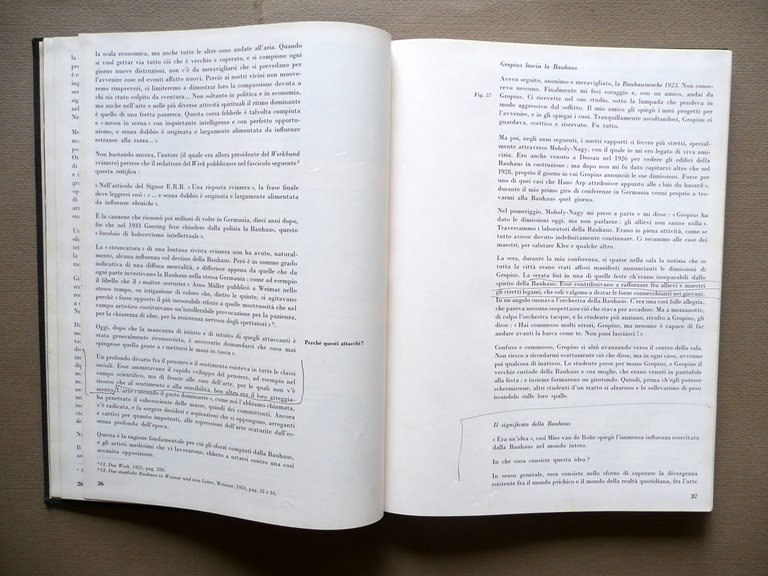 la scala economica, ma anche tutte le altre sono andate all'aria. Quando
si vuol gettar via tutto ciò che è vecchio e superato, e si compiono ogni
giorno nuove distruzioni, non c'è da meravigliarsi che si prevedano per
l'avvenire cose ed eventi affatto nuovi. Perciò ai nostri vicini non muove-
remo rimproveri, ci limiteremo a dimostrar loro la compassione dovuta a
chi sia stato colpito da sventura... Non soltanto in politica e in economia,
ma anche nell'arte e nelle più diverse attività spirituali il ritmo dominante
è quello di una fretta pazzesca. Questa corsa febbrile è talvolta compiuta
e « messa in scena » con inquietante intelligenza e con perfetto opportu-
nismo, e senza dubbio è originata e largamente alimentata da influenze
estranee alla razza... »
Non bastando ancora, l'autore (il quale era allora presidente del Werkbund
svizzero) pretese che il redattore del Werk pubblicasse nel fascicolo seguente⁸
questa rettifica:
« Nell'articolo del Signor E.R.B. « Una risposta svizzera », la frase finale
deve leggersi così: « ... e senza dubbio è originata e largamente alimentata
da influenze ebraiche ».
È la canzone che risuonò poi milioni di volte in Germania, dieci anni dopo,
fin che nel 1933 Goering fece chiudere dalla polizia la Bauhaus, questo
« focolaio di bolscevismo intellettuale ».
La « stroncatura » di una lontana rivista svizzera non ha avuto, natural-
mente, alcuna influenza sul destino della Bauhaus. Però è in sommo grado
indicativa di una diffusa mentalità, e differisce appena da quelle che da
ogni parte investivano la Bauhaus nella stessa Germania: come ad esempio
il libello che il « maître serrurier » Arno Müller pubblicò a Weimar nello
stesso tempo, su istigazione di coloro che, dietro le quinte, si agitavano
perchè « fosse opposto il più inesorabile rifiuto a quelle mostruosità che nel
campo artistico costituivano un'intollerabile provocazione per la pazienza,
per la chiarezza di idee, per la resistenza nervosa degli spettatori »⁹.
Oggi, dopo che la mancanza di istinto e di intuito di quegli attaccanti è
stata generalmente riconosciuta, è necessario domandarsi che cosa mai
spingesse quella gente a « metterei le mani in tasca ».
Perchè questi attacchi?
Un profondo divario fra il pensiero e il sentimento esisteva in tutte le classi
sociali. Esse ammiravano il rapido sviluppo del pensiero, ad esempio nel
campo scientifico, ma di fronte alle cose dell'arte, per le quali non v'è
ricorso che al sentimento e alla sensibilità, ben altro era il loro atteggia-
mento. L'arte « secondo il gusto dominante », come noi l'abbiamo chiamata,
ha penetrato il subcosciente delle masse, quindi dei committenti. Ancora
v'è radicata, e fa sorgere desideri e aspirazioni che si oppongono, arroganti
e cattivi per quanto impotenti, alle espressioni dell'arte scaturite dall'es-
senza profonda dell'epoca.
Questa è la ragione fondamentale per cui gli sforzi compiuti dalla Bauhaus,
e gli artisti medesimi che vi lavorarono, ebbero a urtarsi contro una così
accanita opposizione.
⁸ Cf. Das Werk, 1923, pag. 288.
⁹ Cf. Das staatliche Bauhaus in Weimar und sein Leiter, Weimar, 1924, pag. 32 e 34.
26
36
Gropius lascia la Bauhaus
Avevo seguito, anonimo e meravigliato, la Bauhauswoche 1923. Non cono-
scevo nessuno. Finalmente mi feci coraggio e, con un amico, andai da
Fig. 57
Gropius. Ci ricevette nel suo studio, sotto la lampada che pendeva in
modo aggressivo dal soffitto. Il mio amico gli spiegò i miei progetti per
l'avvenire, e io gli spiegai i suoi. Tranquillamente ascoltandoci, Gropius ci
guardava, scettico e riservato. Fu tutto.
Ma poi, negli anni seguenti, i nostri rapporti si fecero più stretti, special-
mente attraverso Moholy-Nagy, con il quale io mi ero legato di viva ami-
cizia. Ero anche venuto a Dessau nel 1926 per vedere gli edifici della
Bauhaus in costruzione; ma dopo non mi fu dato capitarvi altro che nel
1928, proprio il giorno in cui Gropius annunciò le sue dimissioni. Forse per
uno di quei casi che Hans Arp attribuisce appunto alle « lois du hasard »,
durante il mio primo giro di conferenze in Germania venni proprio a tro-
varmi alla Bauhaus quel giorno.
Nel pomeriggio, Moholy-Nagy mi prese a parte e mi disse: « Gropius ha
dato le dimissioni oggi, ma non parlarne: gli allievi non sanno nulla ».
Traversammo i laboratori della Bauhaus. Erano in piena attività, come se
tutto avesse dovuto indefinitamente continuare. Ci recammo alle case dei
maestri, per salutare Klee e qualche altro.
La sera, durante la mia conferenza, si sparse nella sala la notizia che in
tutta la città erano stati affissi manifesti annuncianti le dimissioni di
Gropius. La serata finì in una di quelle feste ch'erano inseparabili dallo
spirito della Bauhaus. Esse contribuivano a rafforzare fra allievi e maestri
gli stretti legami, che soli valgono a destar le forze sonnecchianti nei giovani.
In un angolo suonava l'orchestra della Bauhaus. C'era una così folle allegria,
che pareva nessuno sospettasse ciò che stava per accadere. Ma a mezzanotte,
di colpo l'orchestra tacque, e lo studente più anziano, rivolto a Gropius, gli
disse: « Hai commesso molti errori, Gropius, ma nessuno è capace di far
andare avanti la barca come te. Non puoi lasciarci! »
Confuso e commosso, Gropius si alzò avanzando verso il centro della sala.
Non riesco a ricordarmi esattamente ciò che disse, ma in ogni caso, avvenne
poi qualcosa di inatteso. Lo studente prese per mano Gropius, e Gropius il
vecchio custode della Bauhaus e sua moglie, che erano venuti in pantofole
alla festa; e insieme formarono un girotondo. Quindi, prima ch'egli potesse
schermirsene, altri studenti d'un tratto si alzarono e lo sollevarono di peso
issandolo sulle loro spalle.
Il significato della Bauhaus
« Era un'idea », così Mies van de Rohe spiegò l'immensa influenza esercitata
dalla Bauhaus nel mondo intero.
In che cosa consiste questa idea?
In senso generale, essa consiste nello sforzo di superare la divergenza
esistente fra il mondo psichico e il mondo della realtà quotidiana, fra l'arte
37